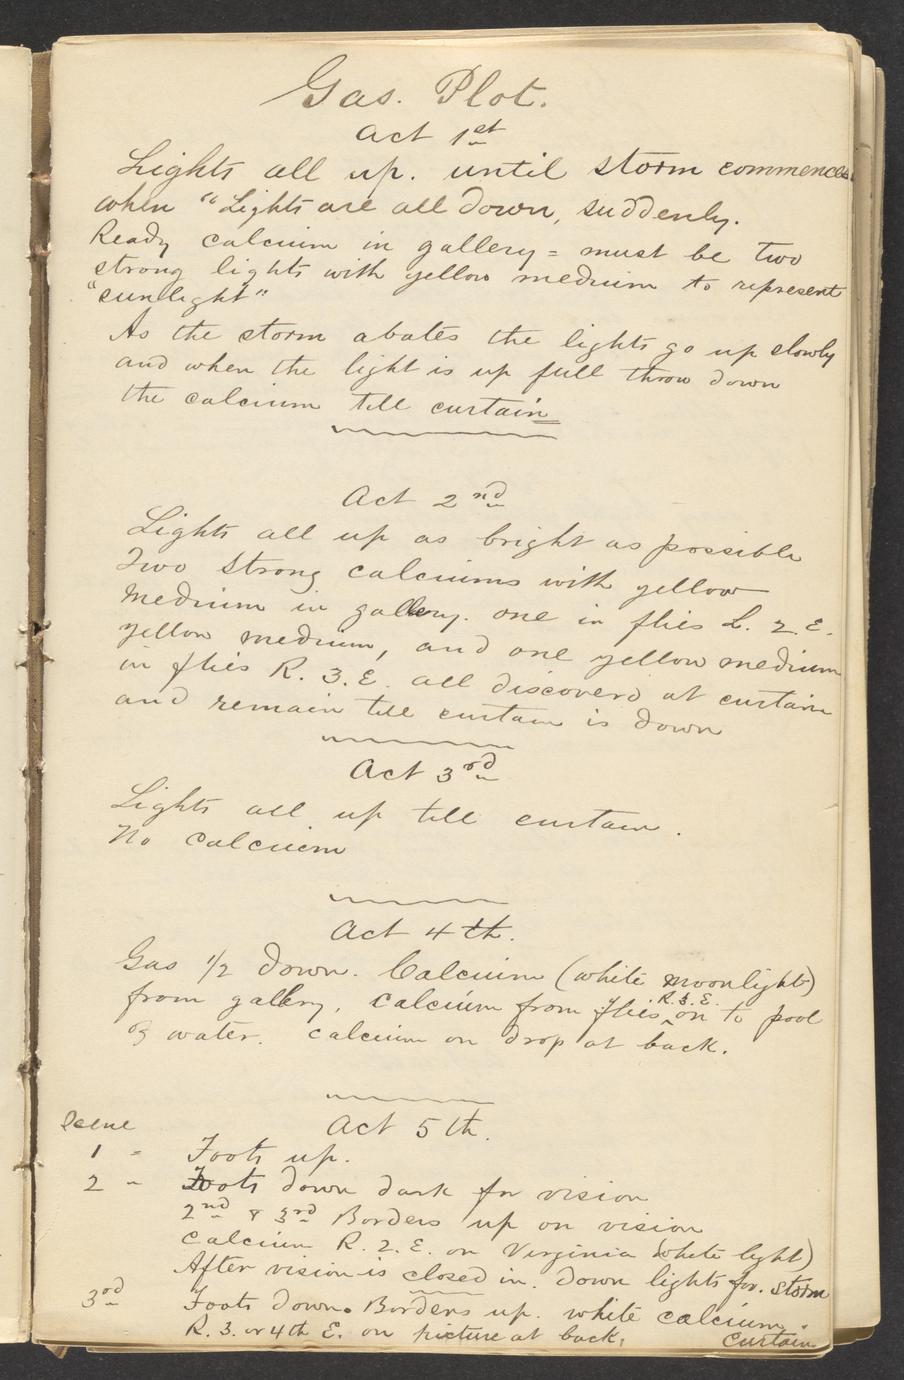 Gas. Plot.
Act 1st
Lights all up. until storm commences.
when "Lights are all down, suddenly.
Ready calcium in gallery = must be two
strong lights with yellow medium to represent
"sunlight"
As the storm abates the lights go up slowly
and when the light is up full throw down
the calcium till curtain
Act 2nd
Lights all up as bright as possible
Two strong calciums with yellow
medium in gallery. one in flies L. 2. E.
yellow medium, and one yellow medium
in flies R. 3. E. all discoverd at curtain
and remain till curtain is down
Act 3rd
Lights all up till curtain.
No calcium
Act 4th.
Gas 1/2 down. Calcium (white moonlight)
R. 3. E.
from gallery, calcium from flies ^ on to pool
of water. calcium on drop at back.
Act 5th.
Scene
1 - Foots up.
2 - Foots down dark for vision
2nd & 3rd Borders up on vision
Calcium R. 2. E. on Virginia (white light)
After vision is closed in. down lights for. storm
3rd Foots down. Borders up. white calcium.
R. 3. or 4th E. on picture at back. Curtain